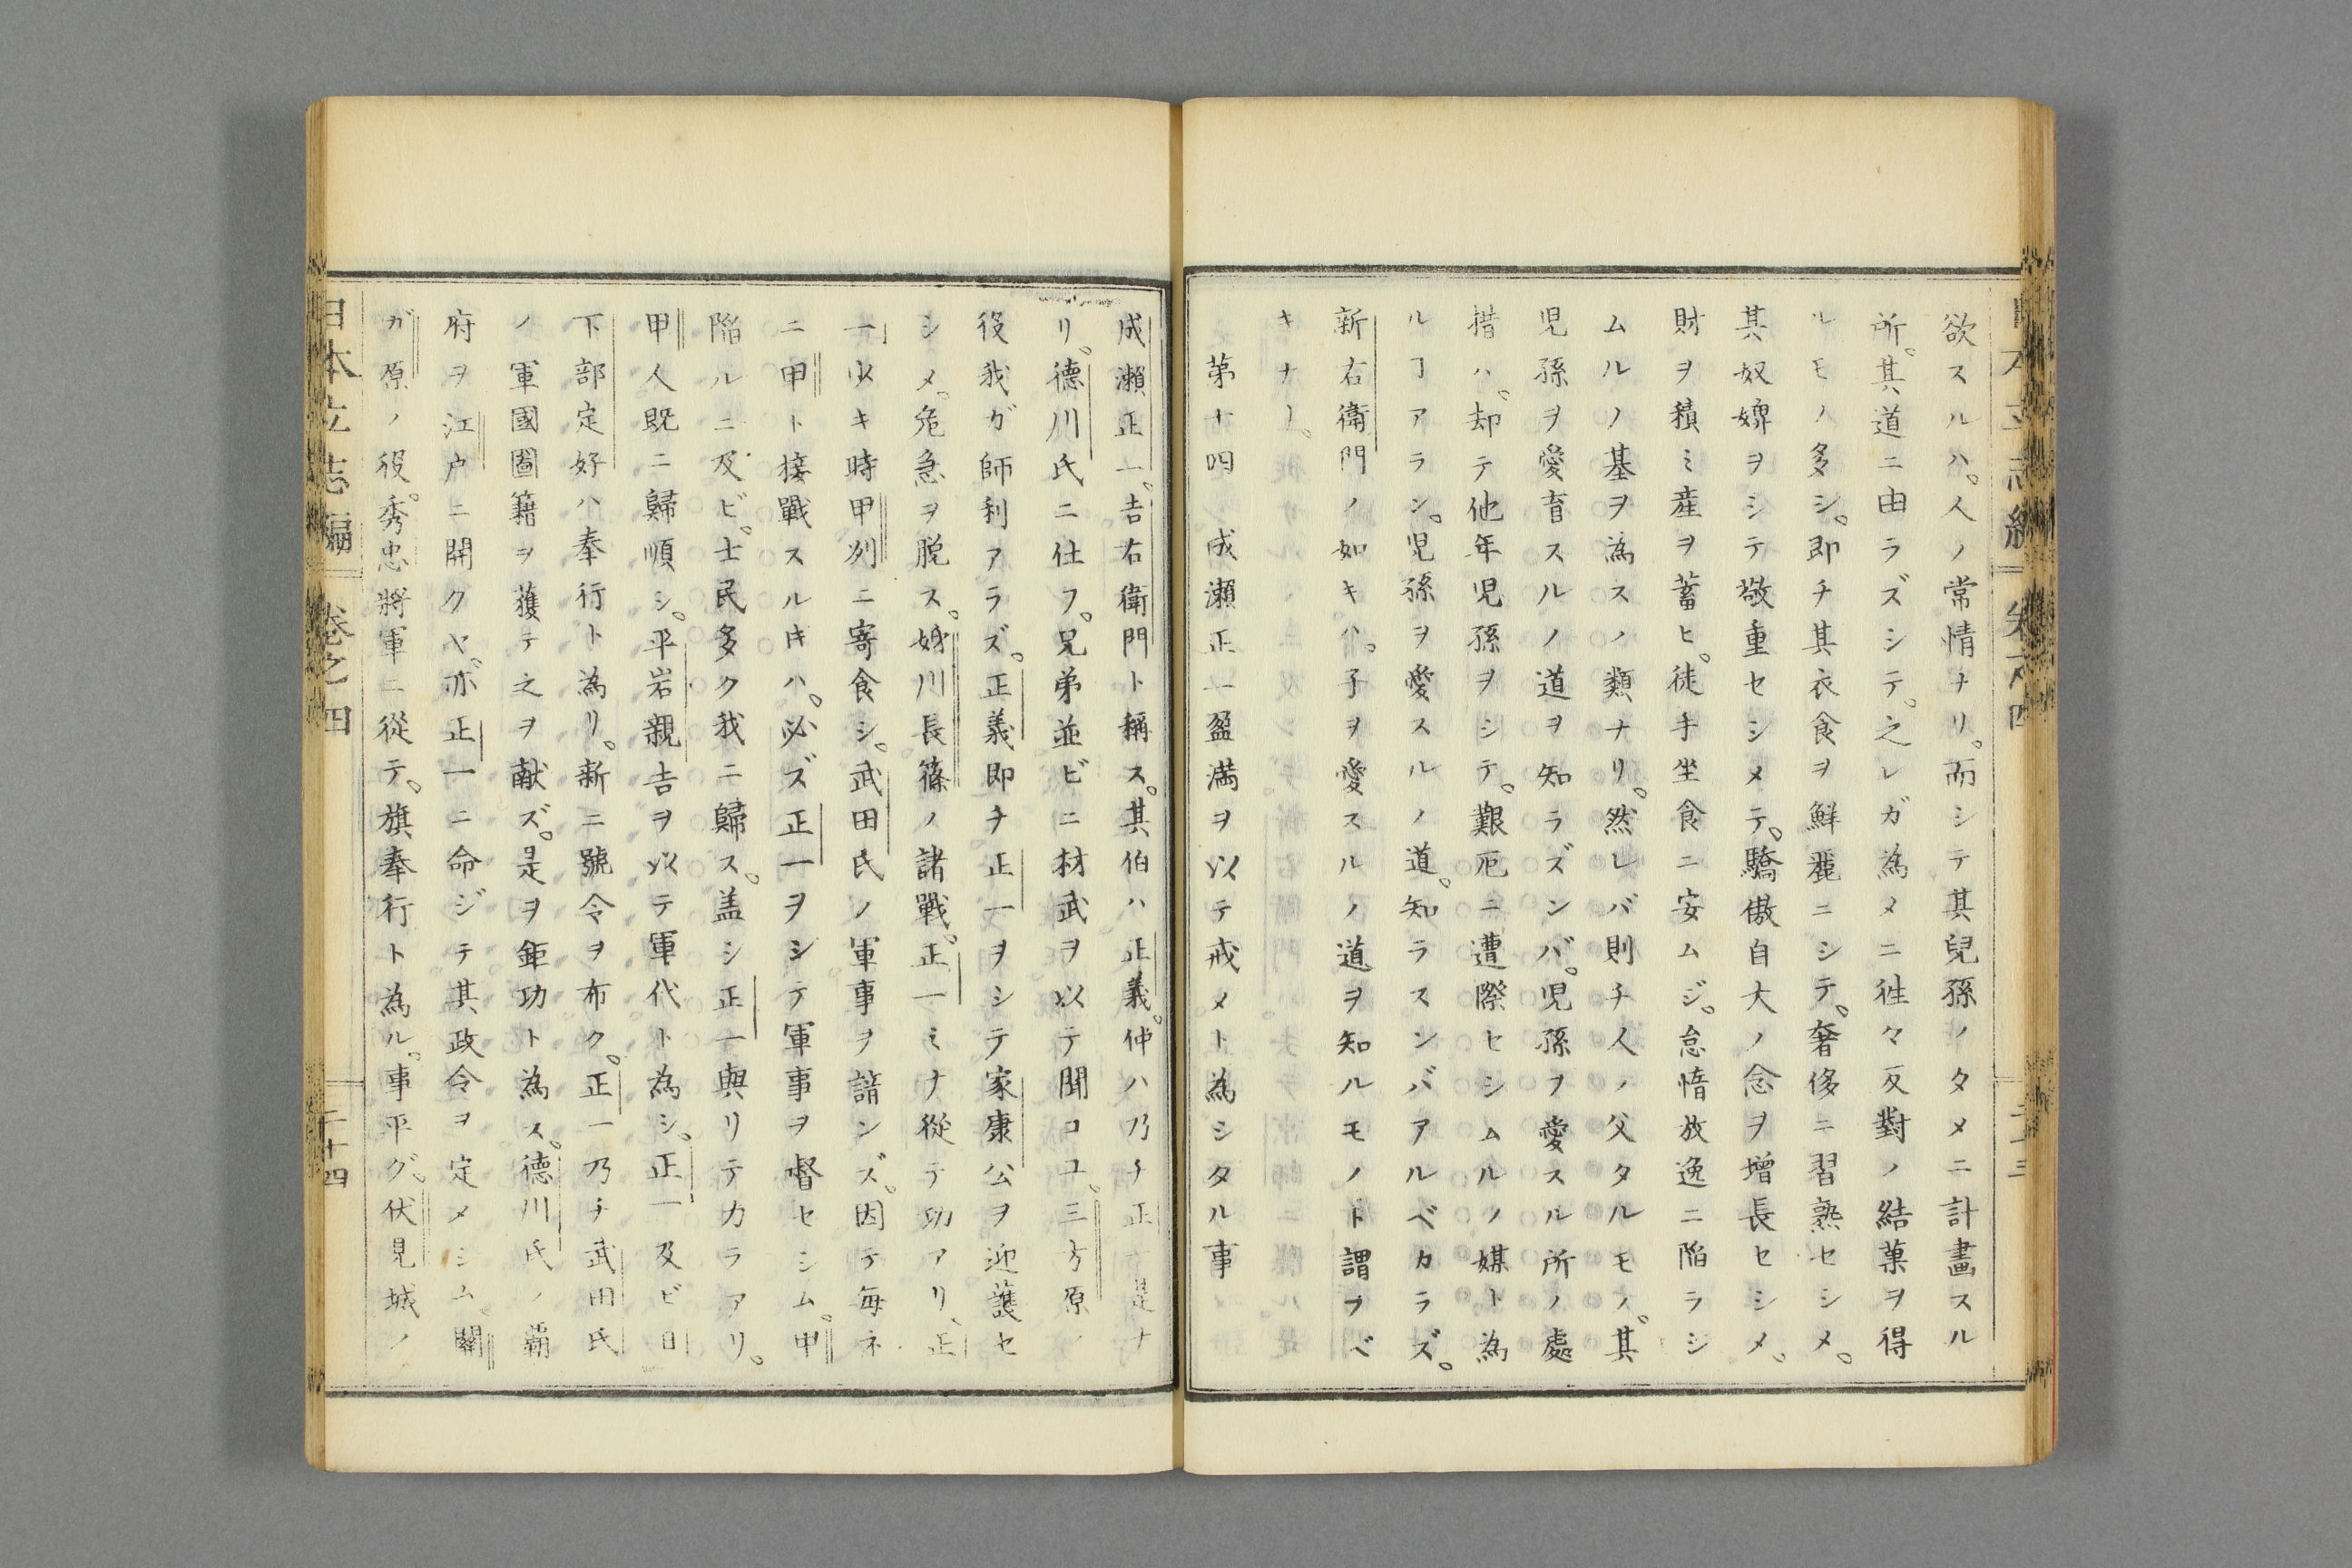 欲スルハ。人ノ常情ナリ。而シテ其兒孫ノタメニ計畫スル
所。其道ニ由ラズシテ。之レガ為メニ徃々反對ノ結菓ヲ得
ルモノ多シ。即チ其衣食ヲ鮮麗ニシテ。奢侈ニ習熟セシメ。
其奴婢ヲシテ敬重セシメテ。驕傲自大ノ念ヲ増長セシメ。
財ヲ積ミ産ヲ蓄ヒ。徒手坐食ニ安ムジ。怠惰放逸ニ陥ラシ
ムルノ基ヲ為スノ類ナリ。然レバ則チ人ノ父タルモノ。其
児孫ヲ愛育スルノ道ヲ知ラズンバ。児孫ヲ愛スル所ノ處
措ハ。却テ他年児孫ヲシテ。艱厄ニ遭際セシムルノ媒ト為
ルヿアラシ。児孫ヲ愛スルノ道。知ラスンバアルベカラズ。
新右衛門ノ如キハ。子ヲ愛スルノ道ヲ知ルモノト謂フベ
キナリ。
第十四 成瀬正一盈満ヲ以テ戒メト為シタル事
日本立志編 卷之四 二十三
成瀬正一。吉右衛門ト稱ス。其伯ハ正義。仲ハ乃チ正一是ナ
リ。德川氏ニ仕フ。兄弟並ビニ材武ヲ以テ聞コユ。三方原ノ
役我ガ師利アラズ。正義即チ正一ヲシテ家康公ヲ迎護セ
シメ。危急ヲ脱ス。姉川長篠ノ諸戰。正一ミナ從テ功アリ、正
一少キ時甲州ニ寄食シ。武田氏ノ軍事ヲ諳ンズ。因テ毎ネ
ニ甲ト接戰スルキハ。必ズ正一ヲシテ軍事ヲ督セシム。甲
陥ルニ及ビ。士民多ク我ニ歸ス。盖シ正一與リテカラアリ。
甲人既ニ歸順シ。平岩親吉ヲ以テ軍代ト為シ。正一及ビ日
下部定好ハ奉行ト為リ。新ニ號令ヲ布ク。正一乃チ武田氏
ノ軍國圖籍ヲ獲テ之ヲ献ズ。是ヲ鉅功ト為ス。德川氏ノ覇
府ヲ江戸ニ開クヤ。亦正一ニ命ジテ其政令ヲ定メシム。關
ガ原ノ役。秀忠將軍ニ從テ。旗奉行ト為ル。事平グ。伏見城ノ
日本立志編 卷之四 二十四